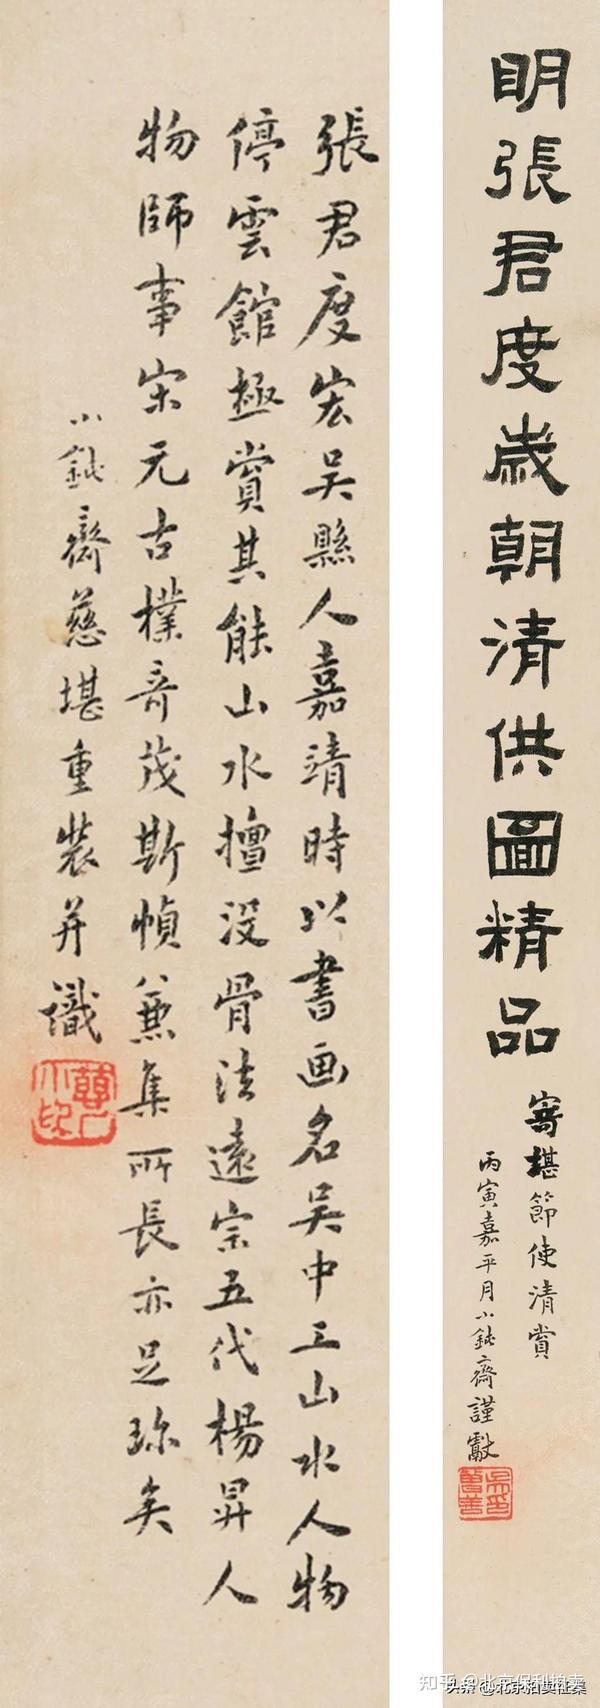 眀張君度歲朝清供圖精品
寄堪節使清賞
丙寅嘉平月小鈍齋謹獻
張君度宏吳縣人嘉靖時以書画名吳中工山水人物
停雲館極賞其能山水擅没骨法遠宗五代楊昇人
物師事宋元古樸奇茂斯幀兼集所長亦足珎矣
小鈍齋慈堪重裝并識
知乎 @北京保利拍卖
头条 @北京拍卖征集